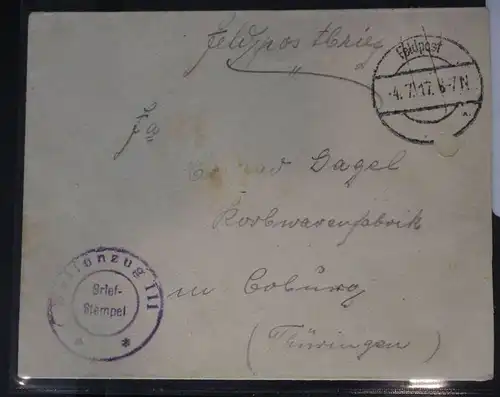 Feldpostbrief
Feldpost
-4.7.17. 6-7 N
Fa.
Conrad Gagel
Korbwarenfabrik
in Coburg
(Thüringen)
III
Brief-
Stempel